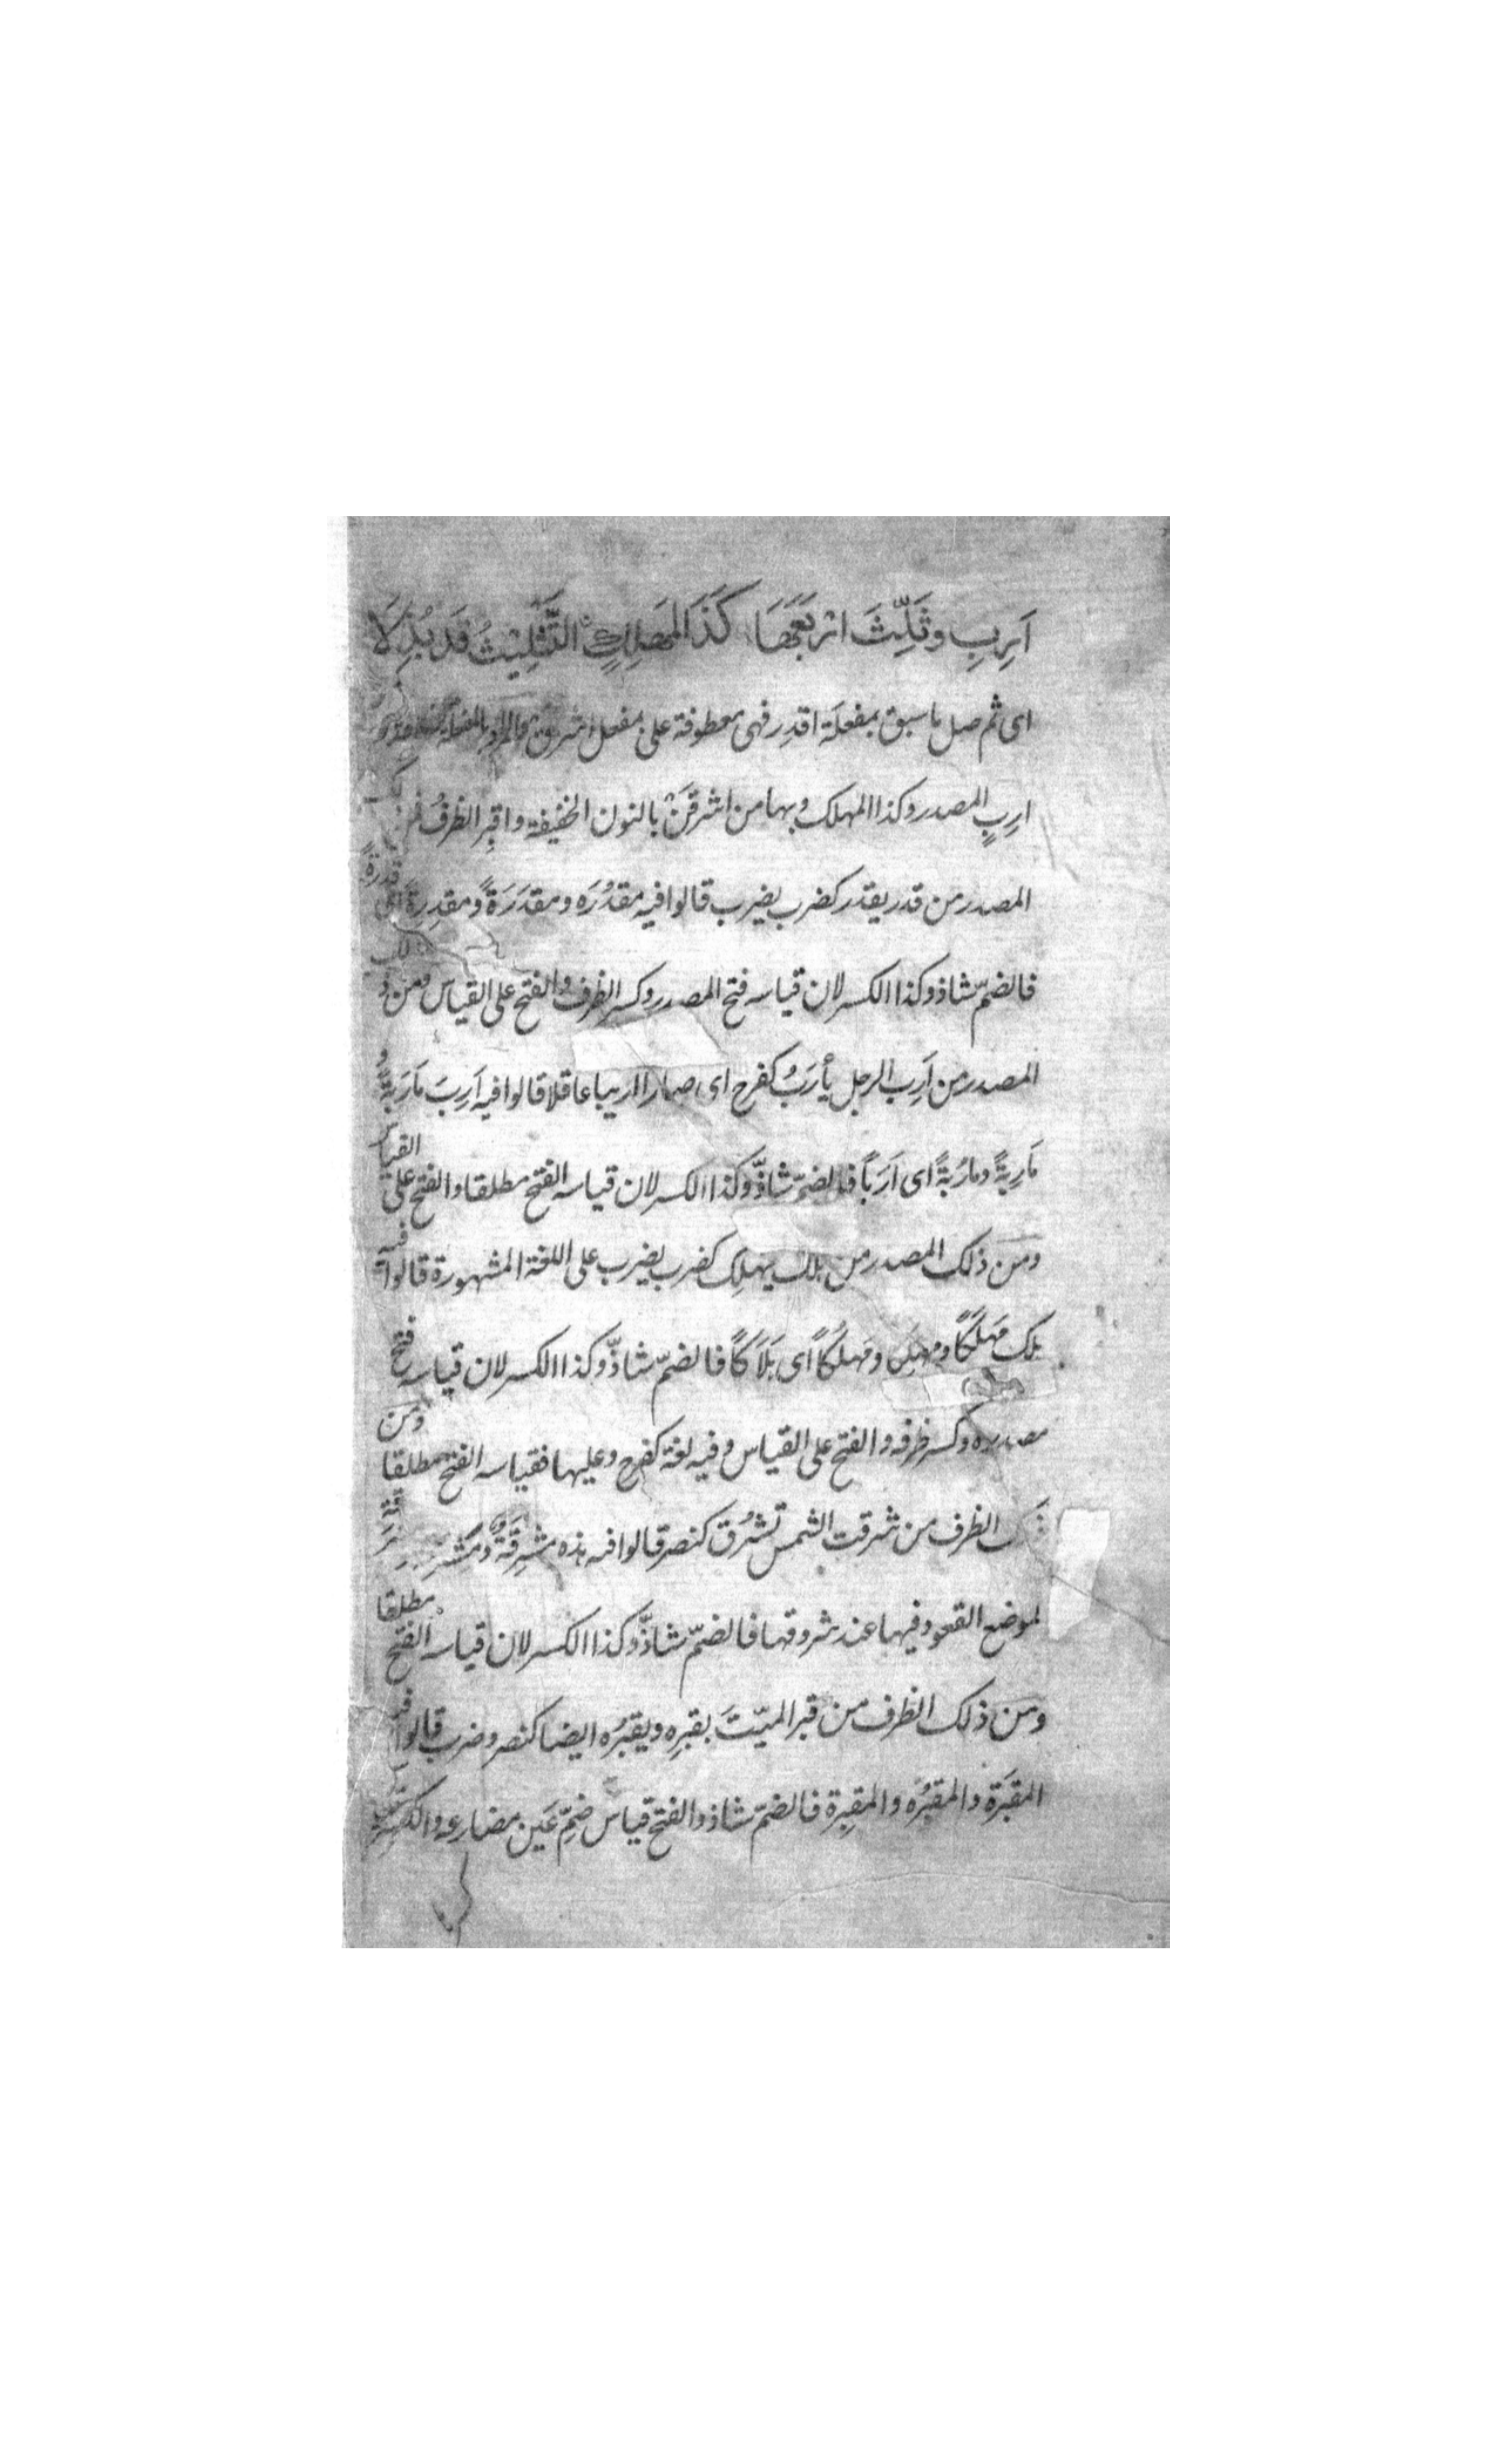 اَرِبِ وثَلِّثَ اربَعَهَا كَذَا لمَهلِكِ التَّثلِيثُ قَد بُذِلَا
اى ثم صل ما سبق بمفعلة اقدِر فهى معطوفة على مفعل اشرق والمراد بالمفعلة
ارِبٍ المصدر وكذا المهلك وبها من اشرقَنْ بالنون الخفيفة واقبِر الظرفُ
المصدر من قدر يقدر كضرب يضرب قالوا فيه مقدُرَه ومقدَرَةً ومقدِرةً اى قدرةً
فالضمّ شاذ وكذا الكسر لان قياسه فتح المصدر وكسر الظرف والفتح على القياس ومن ذلك
المصدر من اَرِب الرجل يأرَبُ كفرح اى صار اريبا عاقلا قالوا فيه اَرِبَ مَارَبَةً و
مَارِبةً ومارُبةً اى اَرَباً فالضمّ شاذّ وكذا الكسر لان قياسه الفتح مطلقا والفتح على القيا
ومن ذلك المصدر من هلك يهلِك كضرب يضرب على اللغة المشهورة قالوا فيه
هلك مَهلَكًا ومهلِكا ومَهلُكاً اى هَلَاكًا فالضمّ شاذّ وكذا الكسر لان قياسه فتح
مصدره وكسر ظرفه والفتح على القياس وفيه لغة كفرح وعليها فقياسه الفتح مطلقا ومن
ذلك الظرف من شرقت الشمس تشرُق كنصر قالوا فيه هذه مشرِقَةٌ و
لموضع القعود فيها عند شروقها فالضمّ شاذّ وكذا الكسر لان قياسه الفتح مطلقا
ومن ذلك الظرف من قبر الميّتَ يقبرِه ويقبُره ايضا كنصر وضرب قالوا فيه
المقبَرة والمقبُره والمقبِرة فالضمّ شاذ والفتح قياس ضمِّ عَين مضارعه والكسر